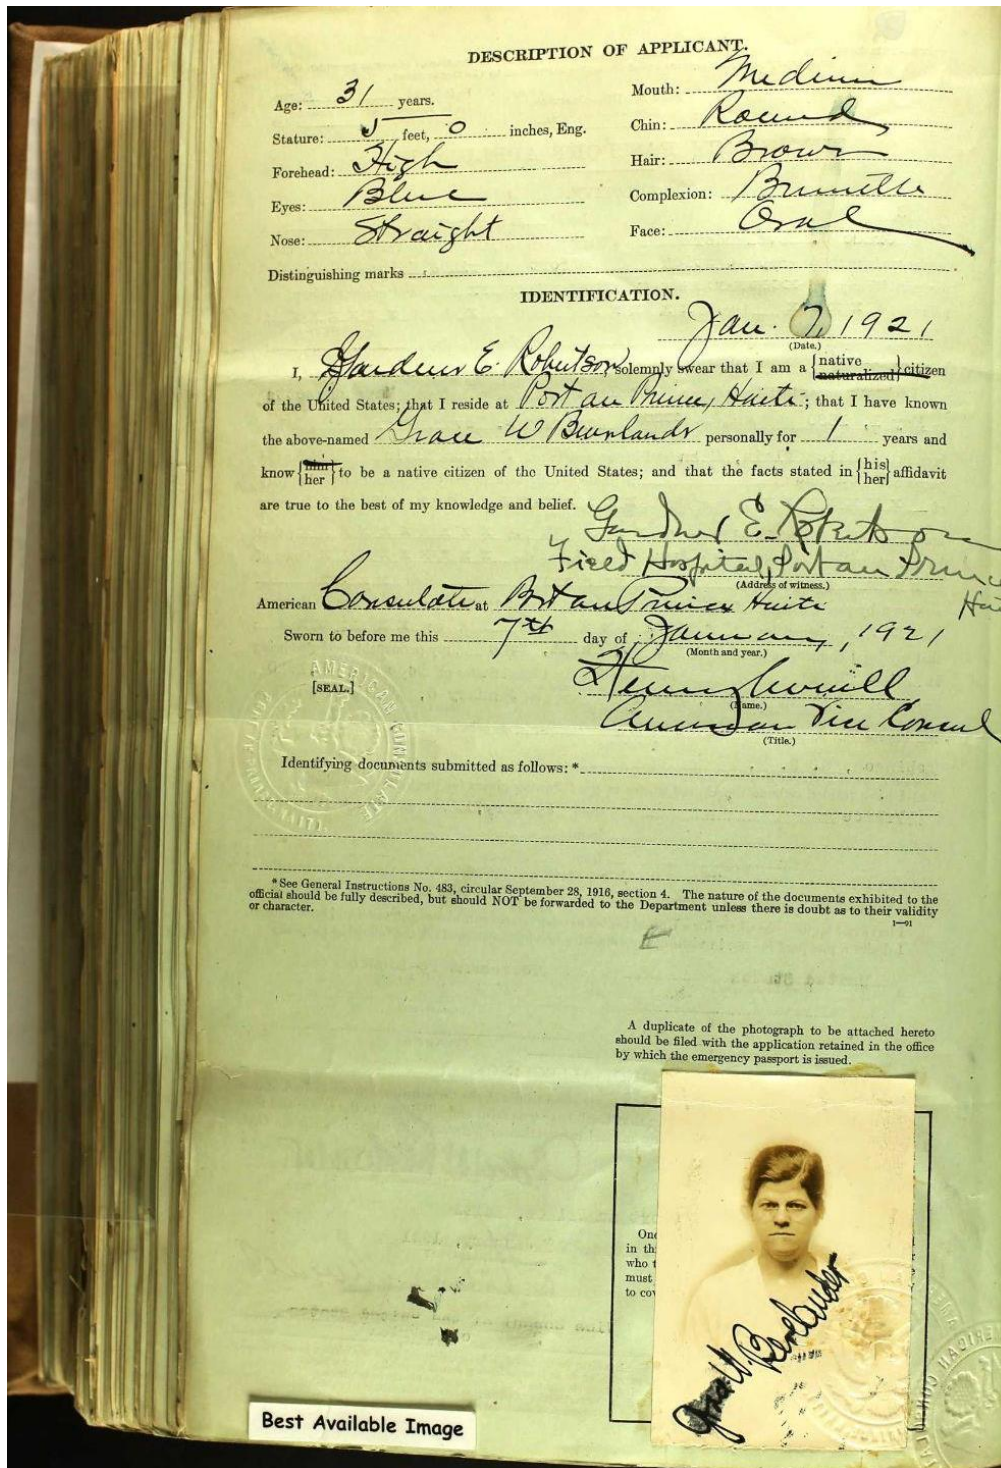 DESCRIPTION OF APPLICANT.
Age: 31 years.
Stature: 5 feet, 0 inches, Eng.
Forehead: High
Eyes: Blue
Nose: Straight
Mouth: Medium
Chin: Round
Hair: Brown
Complexion: Brunette
Face: Oval
Distinguishing marks
IDENTIFICATION.
Jan. 7, 1921
(Date.)
I, Gardner E. Robertson, solemnly swear that I am a {native naturalized} citizen
of the United States; that I reside at Port au Prince, Haiti; that I have known
the above-named Grace W personally for 1 years and
know {him her} to be a native citizen of the United States; and that the facts stated in {his her} affidavit
are true to the best of my knowledge and belief.
Gardner E. Robertson
Field Hospital, Port au Prince
(Address of witness.)
Haiti
American Consulate at Port au Prince Haiti
Sworn to before me this 7th day of January, 1921
(Month and year.)
[SEAL.]
AMERICAN CONSULATE
PORT AU PRINCE, HAITI.
(Name.)
American Vice Consul
(Title.)
Identifying documents submitted as follows: *
* See General Instructions No. 483, circular September 28, 1916, section 4. The nature of the documents exhibited to the
official should be fully described, but should NOT be forwarded to the Department unless there is doubt as to their validity
or character.
1—91
A duplicate of the photograph to be attached hereto
should be filed with the application retained in the office
by which the emergency passport is issued.
One
in th
who
must
to cov
Grace W.
Best Available Image